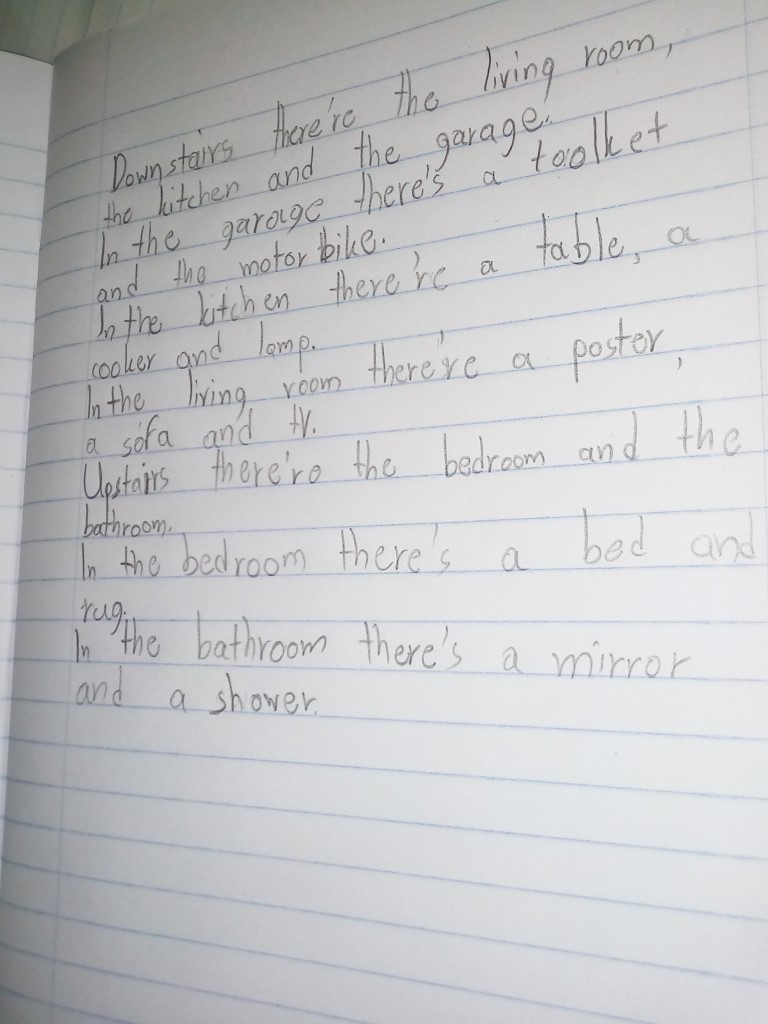 Downstairs there're the living room,
the kitchen and the garage.
In the garage there's a toolket
and the motor bike.
In the kitchen there're a table, a
cooker and lamp.
In the living room there're a poster,
a sofa and tv.
Upstairs there're the bedroom and the
bathroom.
In the bedroom there's a bed and
rug.
In the bathroom there's a mirror
and a shower.